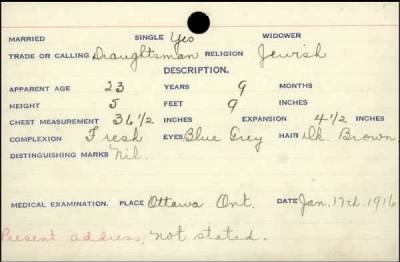 MARRIED SINGLE Yes WIDOWER
TRADE OR CALLING Draughtsman RELIGION Jewish
DESCRIPTION.
APPARENT AGE 23 YEARS 9 MONTHS
HEIGHT 5 FEET 9 INCHES
CHEST MEASUREMENT 36 1/2 INCHES EXPANSION 4 1/2 INCHES
COMPLEXION Fresh EYES Blue Grey HAIR Dk. Brown
DISTINGUISHING MARKS Nil.
MEDICAL EXAMINATION. PLACE Ottawa Ont. DATE Jan. 17th. 1916
Present address, not stated.